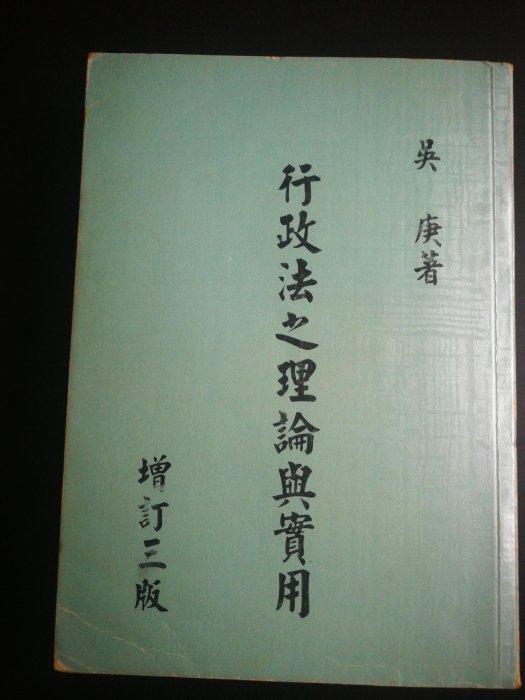 吳庚著
行政法之理論與實用
增訂三版